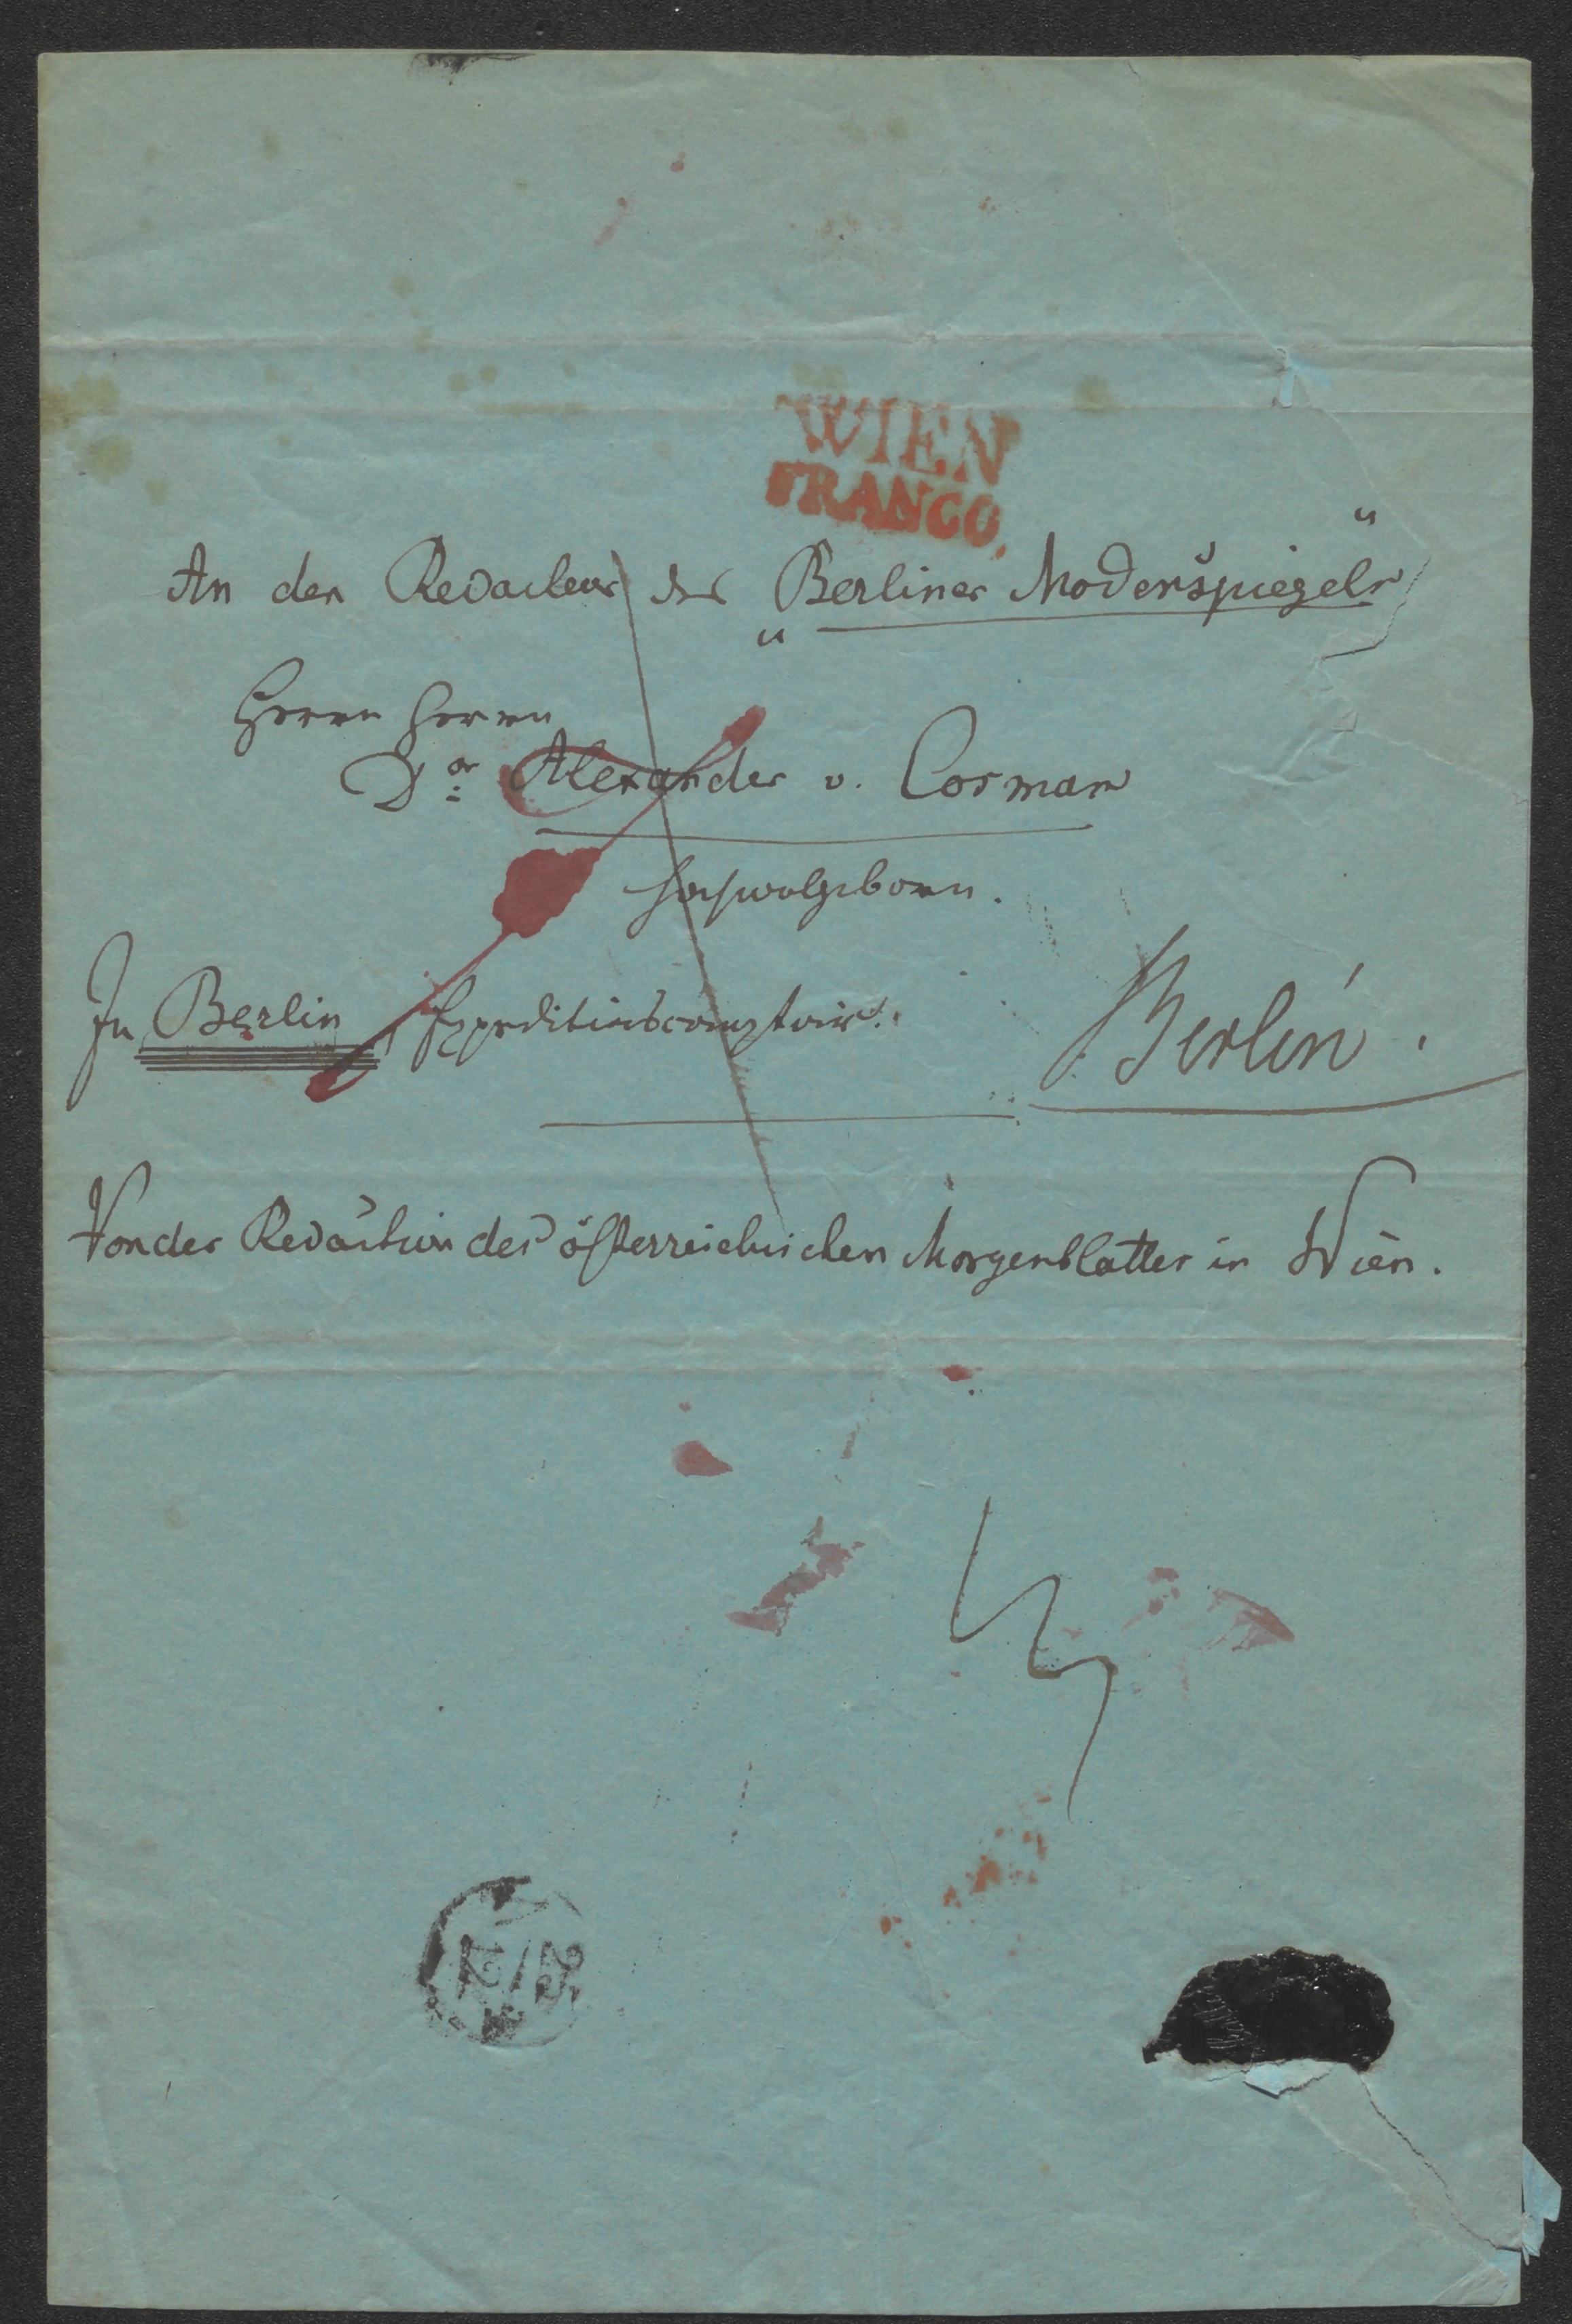 WIEN
FRANCO.
An den Redacteur des „Berliner Modenspiegels“
Herrn Herrn
Dor Alexander v. Cosmar
hochwolgeboren.
In Berlin Expeditionscomptoir.
Berlin.
Von der Redaction des österreichischen Morgenblattes in Wien.